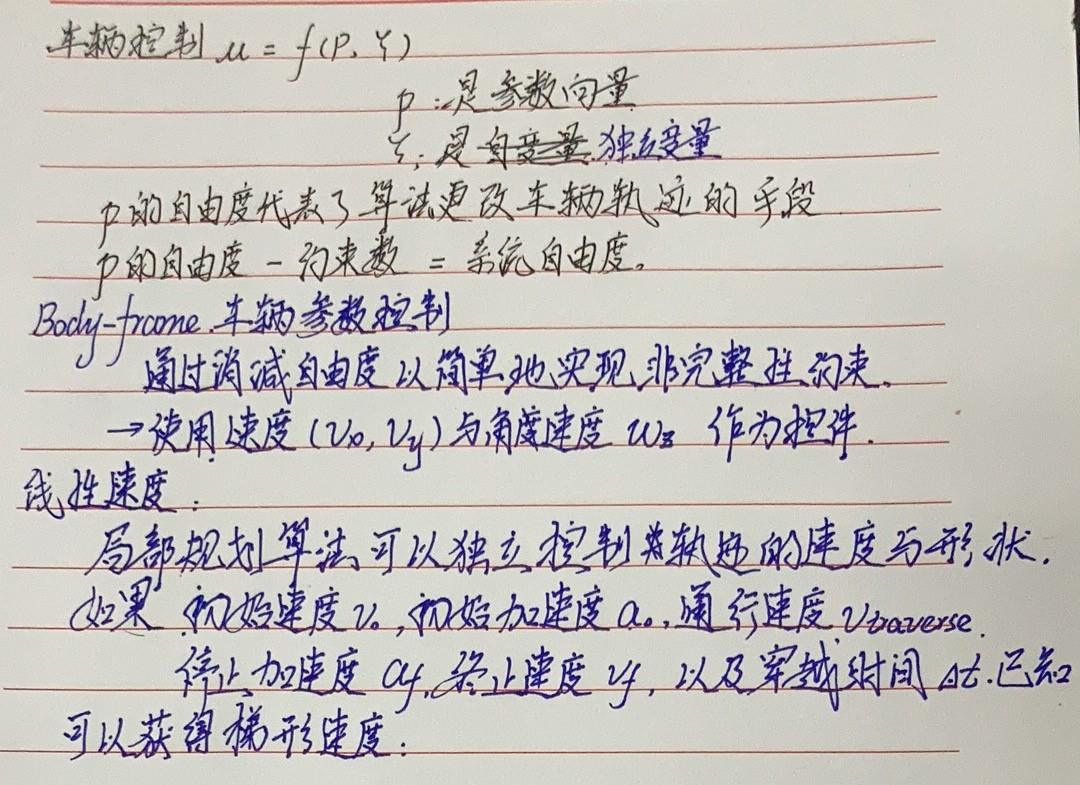 车辆控制 u = f(P, ξ)
p:是参数向量
ξ:是自变量 独立变量
p的自由度代表了算法更改车辆轨迹的手段
p的自由度 - 约束数 = 系统自由度。
Body-frame 车辆参数控制
通过消减自由度以简单地实现非完整性约束.
→使用速度(Vx, Vy)与角度速度 ωz 作为控件.
线性速度:
局部规划算法可以独立控制轨迹的速度与形状.
如果 初始速度v₀,初始加速度a₀,通行速度Vtraverse.
停止加速度 af,终止速度 vf,以及穿越时间 Δt.已知
可以获得梯形速度: